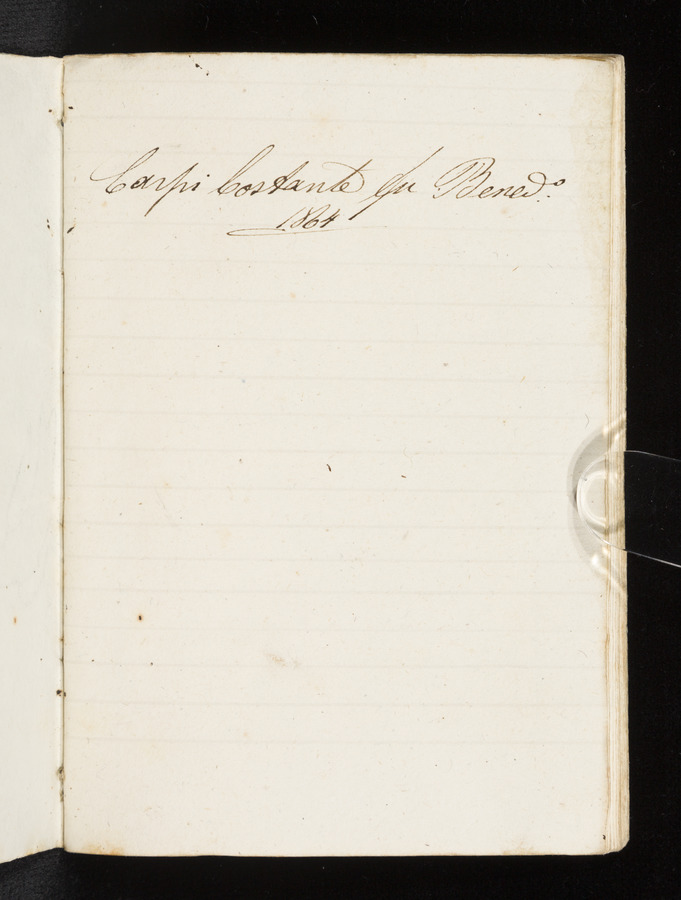 Carpi Costante fu Bened.º
1864